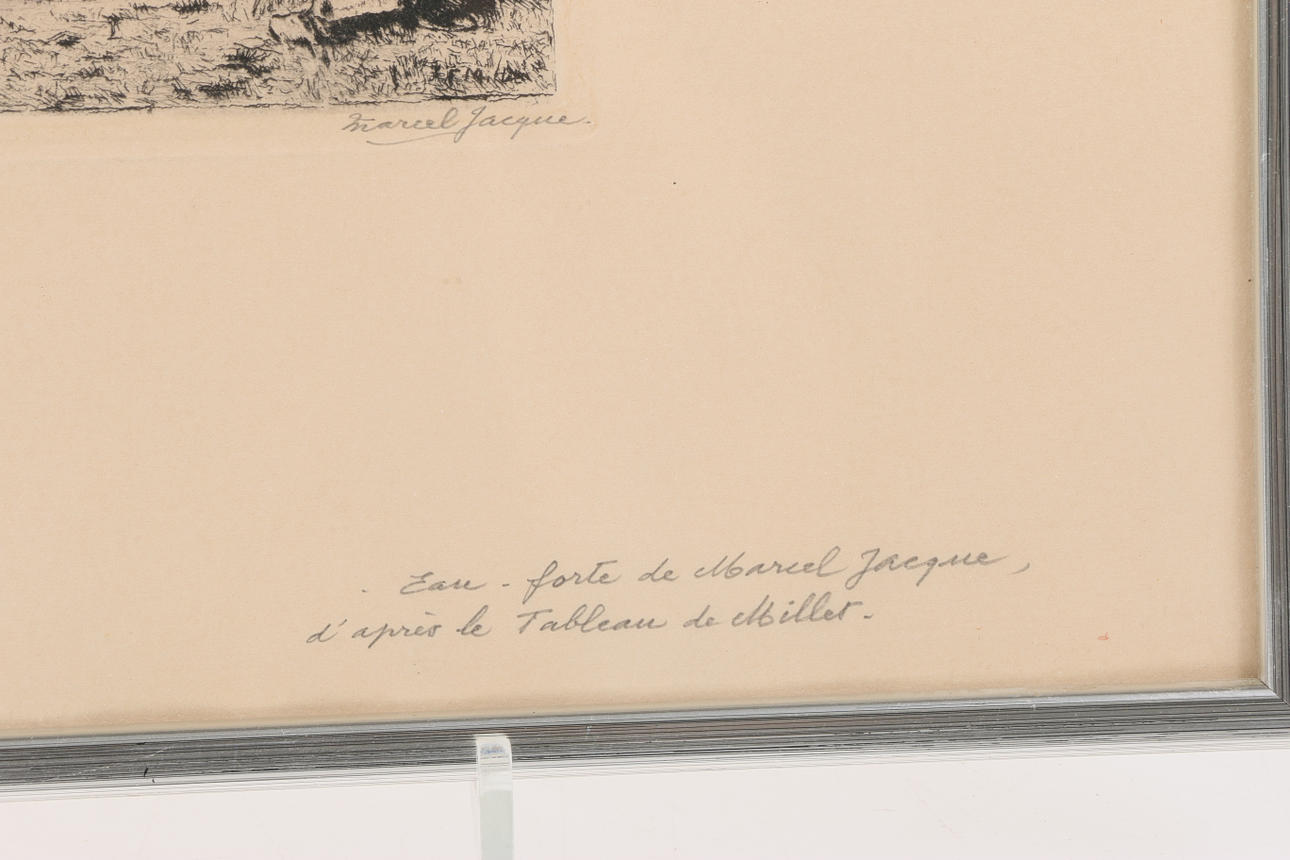 Marcel Jacque.
Eau-forte de Marcel Jacque,
d'après le Tableau de Millet.